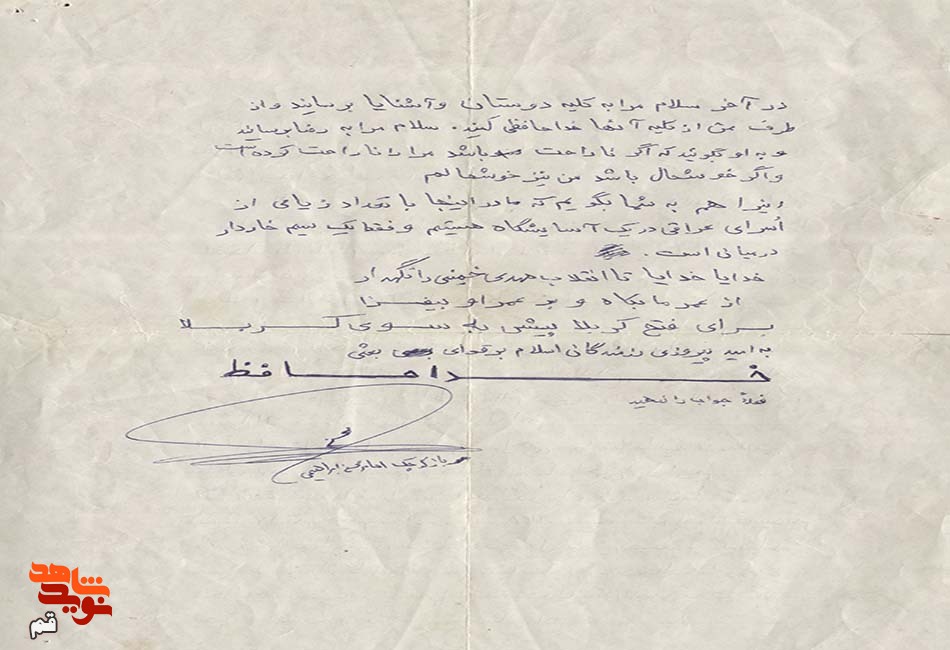 در آخر سلام مرا به کلیه دوستان و آشنایا برسانید و از
طرف من از کلیه آنها خداحافظی کنید. سلام مرا به رضا برسانید
و به او بگوئید که اگر ناراحت باشد مرا ناراحت کرده است
و اگر خوشحال باشد من نیز خوشحالم
اینرا هم به شما بگویم که ما در اینجا با تعداد زیادی از
اُسرای عراقی در یک آسایشگاه هستیم و فقط یک سیم خاردار
درمیانی است.
خدایا خدایا تا انقلاب مهدی خمینی را نگهدار
از عمر ما بکاه و بر عمر او بیفزا
برای فتح کربلا پیش به سوی کربلا
به امید پیروزی رزمندگان اسلام بر قوای بعثی
خداحافظ
فعلاً جواب را ندهید
سرباز کوچک امام محسن ابراهیمی
نوید شاهد
قم